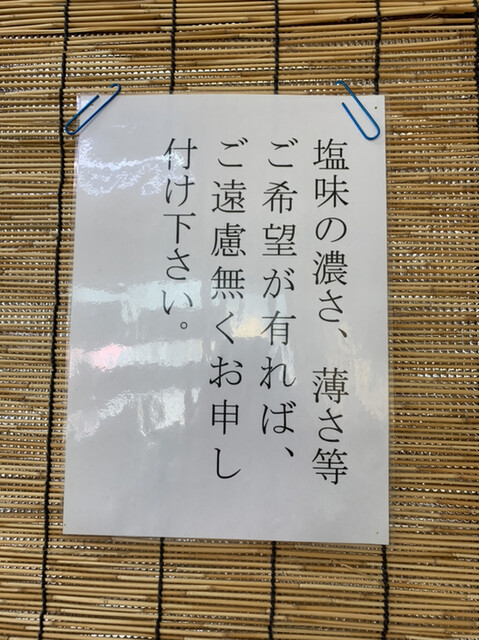 塩味の濃さ、薄さ等
ご希望が有れば、
ご遠慮無くお申し
付け下さい。